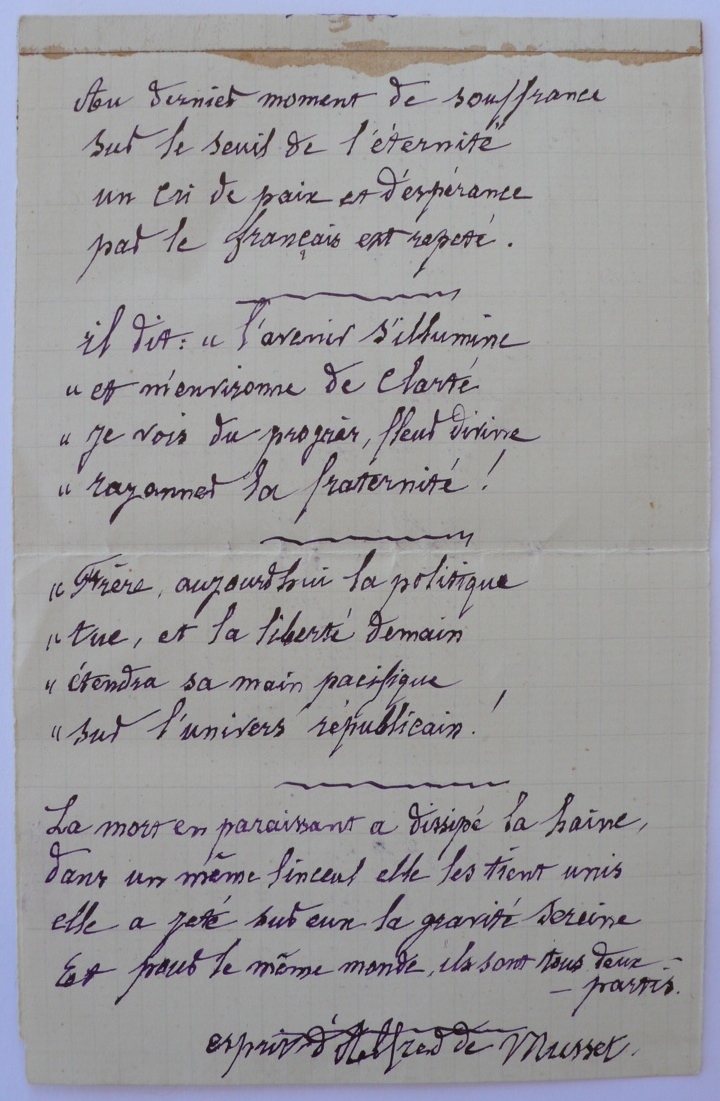 Au dernier moment de souffrance
sur le seuil de l'éternité
un cri de paix et d'espérance
par le français est repeté.
il dit: " l'avenir s'illumine
" et m'environne de clarté
" je vois du progrès, fleur divine
" rayonner la fraternité !
" Frère, aujourd'hui la politique
" tue, et la liberté demain
" étendra sa main pacifique
" sur l'univers républicain !
La mort en paraissant a dissipé la haine,
dans un même linceul elle les tient unis
elle a jeté sur eux la gravité sereine
Et pour le même monde, ils sont tous deux –
– partis.
esprit d'Alfred de Musset.